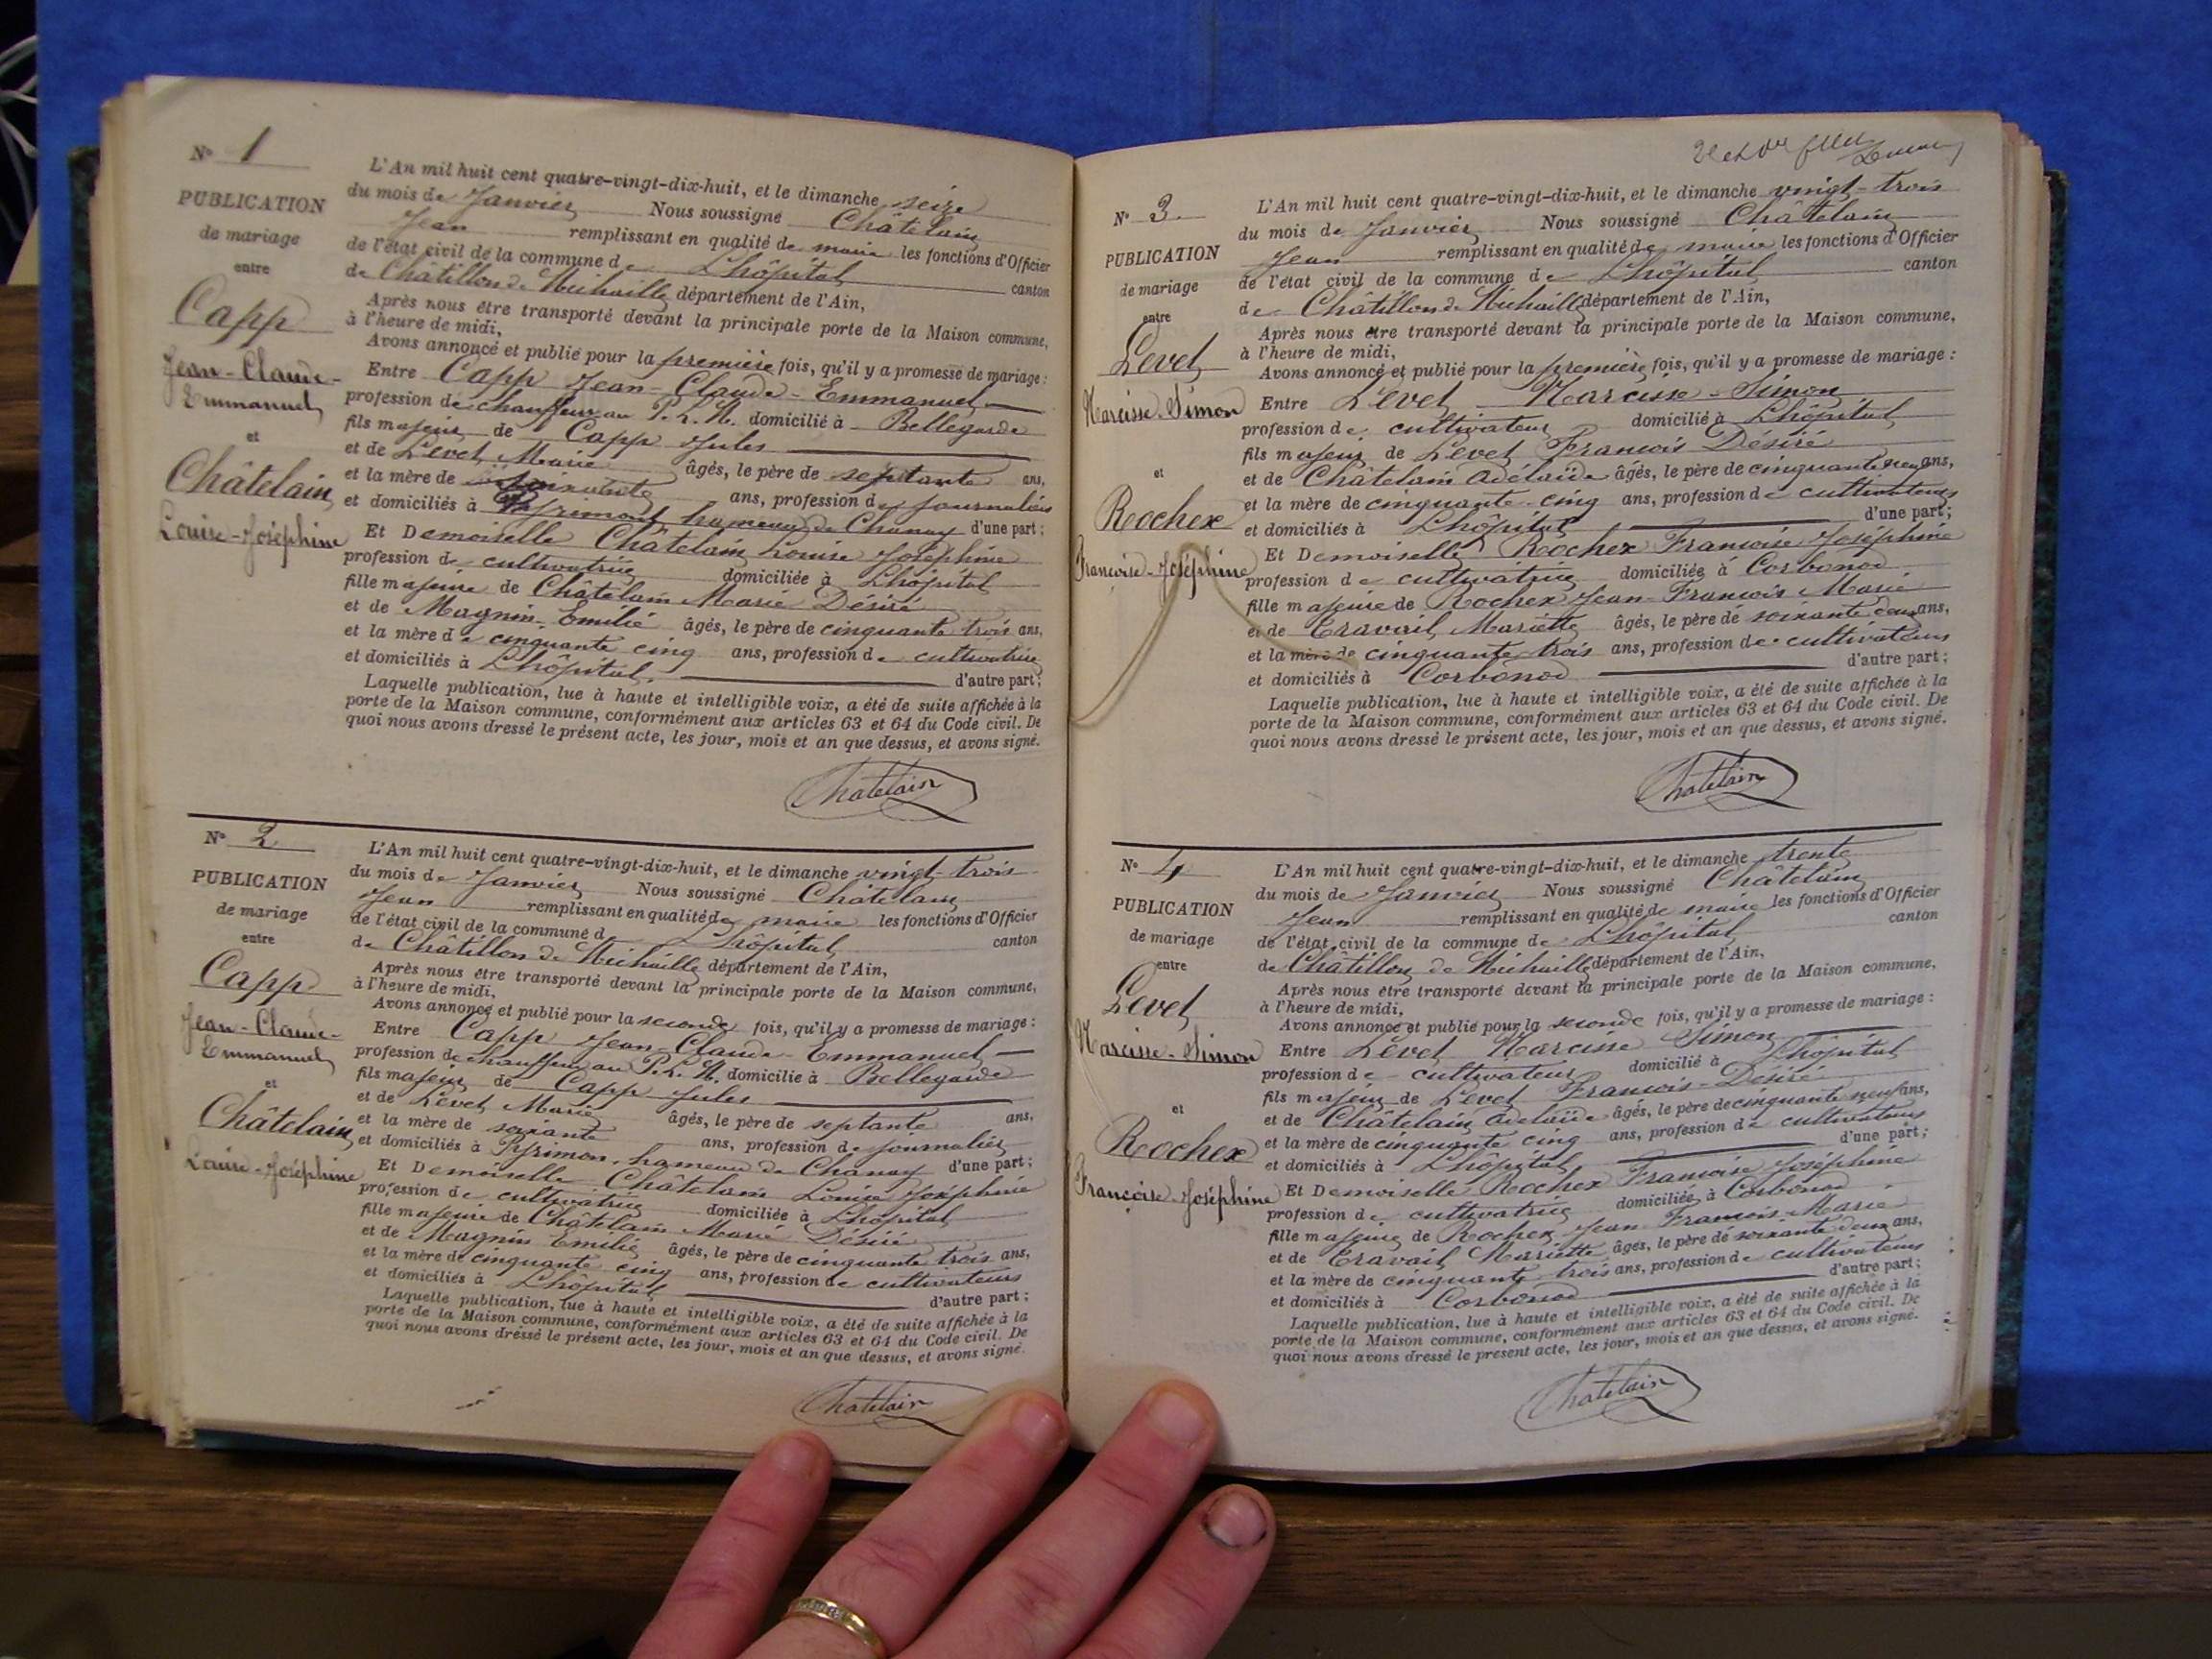 N° 1
PUBLICATION
de mariage
entre
Capp
Jean-Claude-
Emmanuel
et
Châtelain
Louise-Joséphine
L'An mil huit cent quatre-vingt-dix-huit, et le dimanche seize
du mois de Janvier Nous soussigné Châtelain
Jean remplissant en qualité de maire les fonctions d'Officier
de l'état civil de la commune de Lhôpital canton
de Châtillon de Michaille département de l'Ain,
Après nous être transporté devant la principale porte de la Maison commune,
à l'heure de midi,
Avons annoncé et publié pour la première fois, qu'il y a promesse de mariage :
Entre Capp Jean-Claude-Emmanuel
profession de chauffeur au P.L.M. domicilié à Bellegarde
fils majeur de Capp Jules
et de Levet Marie âgés, le père de septante ans,
et la mère de soixante ans, profession de journaliers
et domiciliés à hameau de Chanay d'une part ;
Et Demoiselle Châtelain Louise Joséphine
profession de cultivatrice domiciliée à Lhôpital
fille majeure de Châtelain Marie Désiré
et de Magnin Emilie âgés, le père de cinquante trois ans,
et la mère de cinquante cinq ans, profession de cultivatrice
et domiciliés à Lhôpital. d'autre part ;
Laquelle publication, lue à haute et intelligible voix, a été de suite affichée à la
porte de la Maison commune, conformément aux articles 63 et 64 du Code civil. De
quoi nous avons dressé le présent acte, les jour, mois et an que dessus, et avons signé.
Chatelain
N° 2
PUBLICATION
de mariage
entre
Capp
Jean-Claude-
Emmanuel
et
Châtelain
Louise-Joséphine
L'An mil huit cent quatre-vingt-dix-huit, et le dimanche vingt-trois
du mois de Janvier Nous soussigné Châtelain
Jean remplissant en qualité de maire les fonctions d'Officier
de l'état civil de la commune d Lhôpital canton
de Châtillon de Michaille département de l'Ain,
Après nous être transporté devant la principale porte de la Maison commune,
à l'heure de midi,
Avons annoncé et publié pour la seconde fois, qu'il y a promesse de mariage :
Entre Capp Jean-Claude-Emmanuel
profession de chauffeur au P.L.M. domicilié à Bellegarde
fils majeur de Capp Jules
et de Levet Marie âgés, le père de septante ans,
et la mère de soixante ans, profession de journaliers
et domiciliés à hameau de Chanay d'une part ;
Et Demoiselle Châtelain Louise Joséphine
profession de cultivatrice domiciliée à Lhôpital
fille majeure de Châtelain Marie Désiré
et de Magnin Emilie âgés, le père de cinquante trois ans,
et la mère de cinquante cinq ans, profession de cultivateurs
et domiciliés à Lhôpital d'autre part ;
Laquelle publication, lue à haute et intelligible voix, a été de suite affichée à la
porte de la Maison commune, conformément aux articles 63 et 64 du Code civil. De
quoi nous avons dressé le présent acte, les jour, mois et an que dessus, et avons signé.
Chatelain
N° 3
PUBLICATION
de mariage
entre
Levet
Narcisse-Simon
et
Rochex
Françoise-Joséphine
L'An mil huit cent quatre-vingt-dix-huit, et le dimanche vingt-trois
du mois de Janvier Nous soussigné Châtelain
Jean remplissant en qualité de maire les fonctions d'Officier
de l'état civil de la commune de Lhôpital canton
de Châtillon de Michaille département de l'Ain,
Après nous être transporté devant la principale porte de la Maison commune,
à l'heure de midi,
Avons annoncé et publié pour la première fois, qu'il y a promesse de mariage :
Entre Levet Narcisse-Simon
profession de cultivateur domicilié à Lhôpital
fils majeur de Levet François Désiré
et de Châtelain Adélaïde âgés, le père de cinquante neuf ans,
et la mère de cinquante-cinq ans, profession de cultivateurs
et domiciliés à Lhôpital d'une part ;
Et Demoiselle Rochex Françoise Joséphine
profession de cultivatrice domiciliée à Corbonod
fille majeure de Rochex Jean-François Marie
et de Travail Mariette âgés, le père de soixante deux ans,
et la mère de cinquante trois ans, profession de cultivateurs
et domiciliés à Corbonod d'autre part ;
Laquelle publication, lue à haute et intelligible voix, a été de suite affichée à la
porte de la Maison commune, conformément aux articles 63 et 64 du Code civil. De
quoi nous avons dressé le présent acte, les jour, mois et an que dessus, et avons signé.
Chatelain
N° 4
PUBLICATION
de mariage
entre
Levet
Narcisse-Simon
et
Rochex
Françoise-Joséphine
L'An mil huit cent quatre-vingt-dix-huit, et le dimanche trente
du mois de Janvier Nous soussigné Châtelain
Jean remplissant en qualité de maire les fonctions d'Officier
de l'état civil de la commune de Lhôpital canton
de Châtillon de Michaille département de l'Ain,
Après nous être transporté devant la principale porte de la Maison commune,
à l'heure de midi,
Avons annoncé et publié pour la seconde fois, qu'il y a promesse de mariage :
Entre Levet Narcisse Simon
profession de cultivateur domicilié à Lhôpital
fils majeur de Levet François-Désiré
et de Châtelain Adélaïde âgés, le père de cinquante neuf ans,
et la mère de cinquante cinq ans, profession de cultivateurs
et domiciliés à Lhôpital d'une part ;
Et Demoiselle Rochex Françoise Joséphine
profession de cultivatrice domiciliée à Corbonod
fille majeure de Rochex Jean François-Marie
et de Travail Mariette âgés, le père de soixante deux ans,
et la mère de cinquante trois ans, profession de cultivateurs
et domiciliés à Corbonod d'autre part ;
Laquelle publication, lue à haute et intelligible voix, a été de suite affichée à la
porte de la Maison commune, conformément aux articles 63 et 64 du Code civil. De
quoi nous avons dressé le présent acte, les jour, mois et an que dessus, et avons signé.
Chatelain